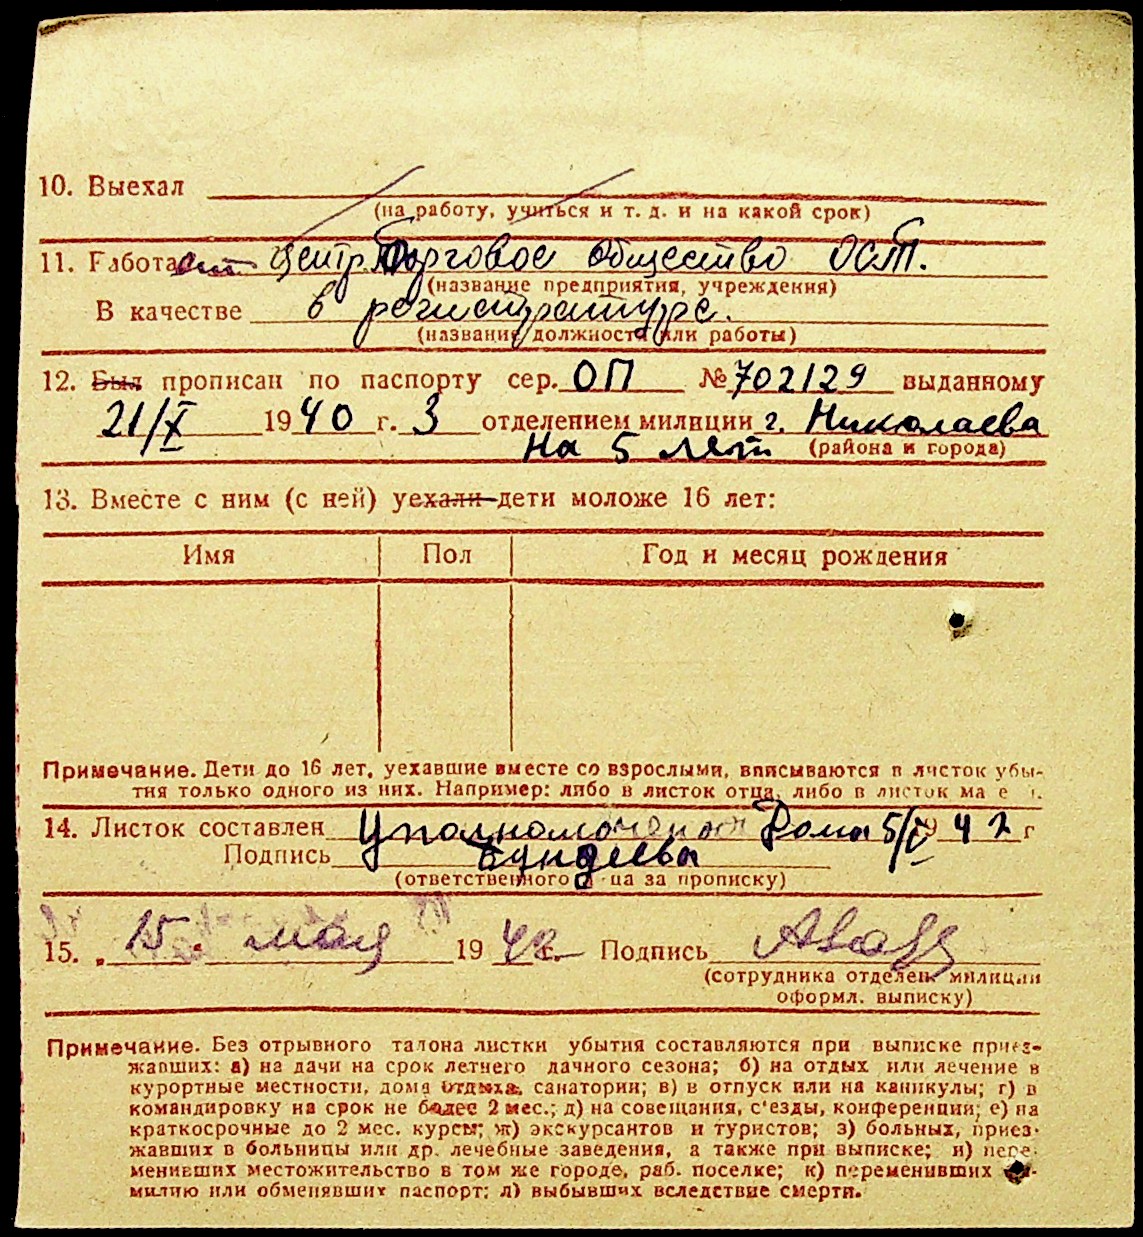 10. Выехал
(на работу, учиться и т. д. и на какой срок)
11. Работает Центр. Торговое общество Ост.
(название предприятия, учреждения)
В качестве в регистратуре.
(название должности или работы)
12. Был прописан по паспорту сер. ОП № 702129 выданному
21/X 1940 г. 3 отделением милиции г. Николаева
на 5 лет (района и города)
13. Вместе с ним (с ней) уехали дети моложе 16 лет:
Имя Пол Год и месяц рождения
Примечание. Дети до 16 лет, уехавшие вместе со взрослыми, вписываются в листок убы-
тия только одного из них. Например: либо в листок отца, либо в листок ма е и.
14. Листок составлен Уполномоченн Дома 5/V 42 г
Подпись
(ответственного ца за прописку)
15. 15. мая 1942 г. Подпись
(сотрудника отделен. милиции
оформл. выписку)
Примечание. Без отрывного талона листки убытия составляются при выписке приез-
жавших: а) на дачи на срок летнего дачного сезона; б) на отдых или лечение в
курортные местности, дома отдыха, санатории; в) в отпуск или на каникулы; г) в
командировку на срок не более 2 мес.; д) на совещания, с'езды, конференции; е) на
краткосрочные до 2 мес. курсы; ж) экскурсантов и туристов; з) больных, приез-
жавших в больницы или др. лечебные заведения, а также при выписке; и) пере-
менивших местожительство в том же городе, раб. поселке; к) переменивших фа-
милию или обменявших паспорт; л) выбывших вследствие смерти.